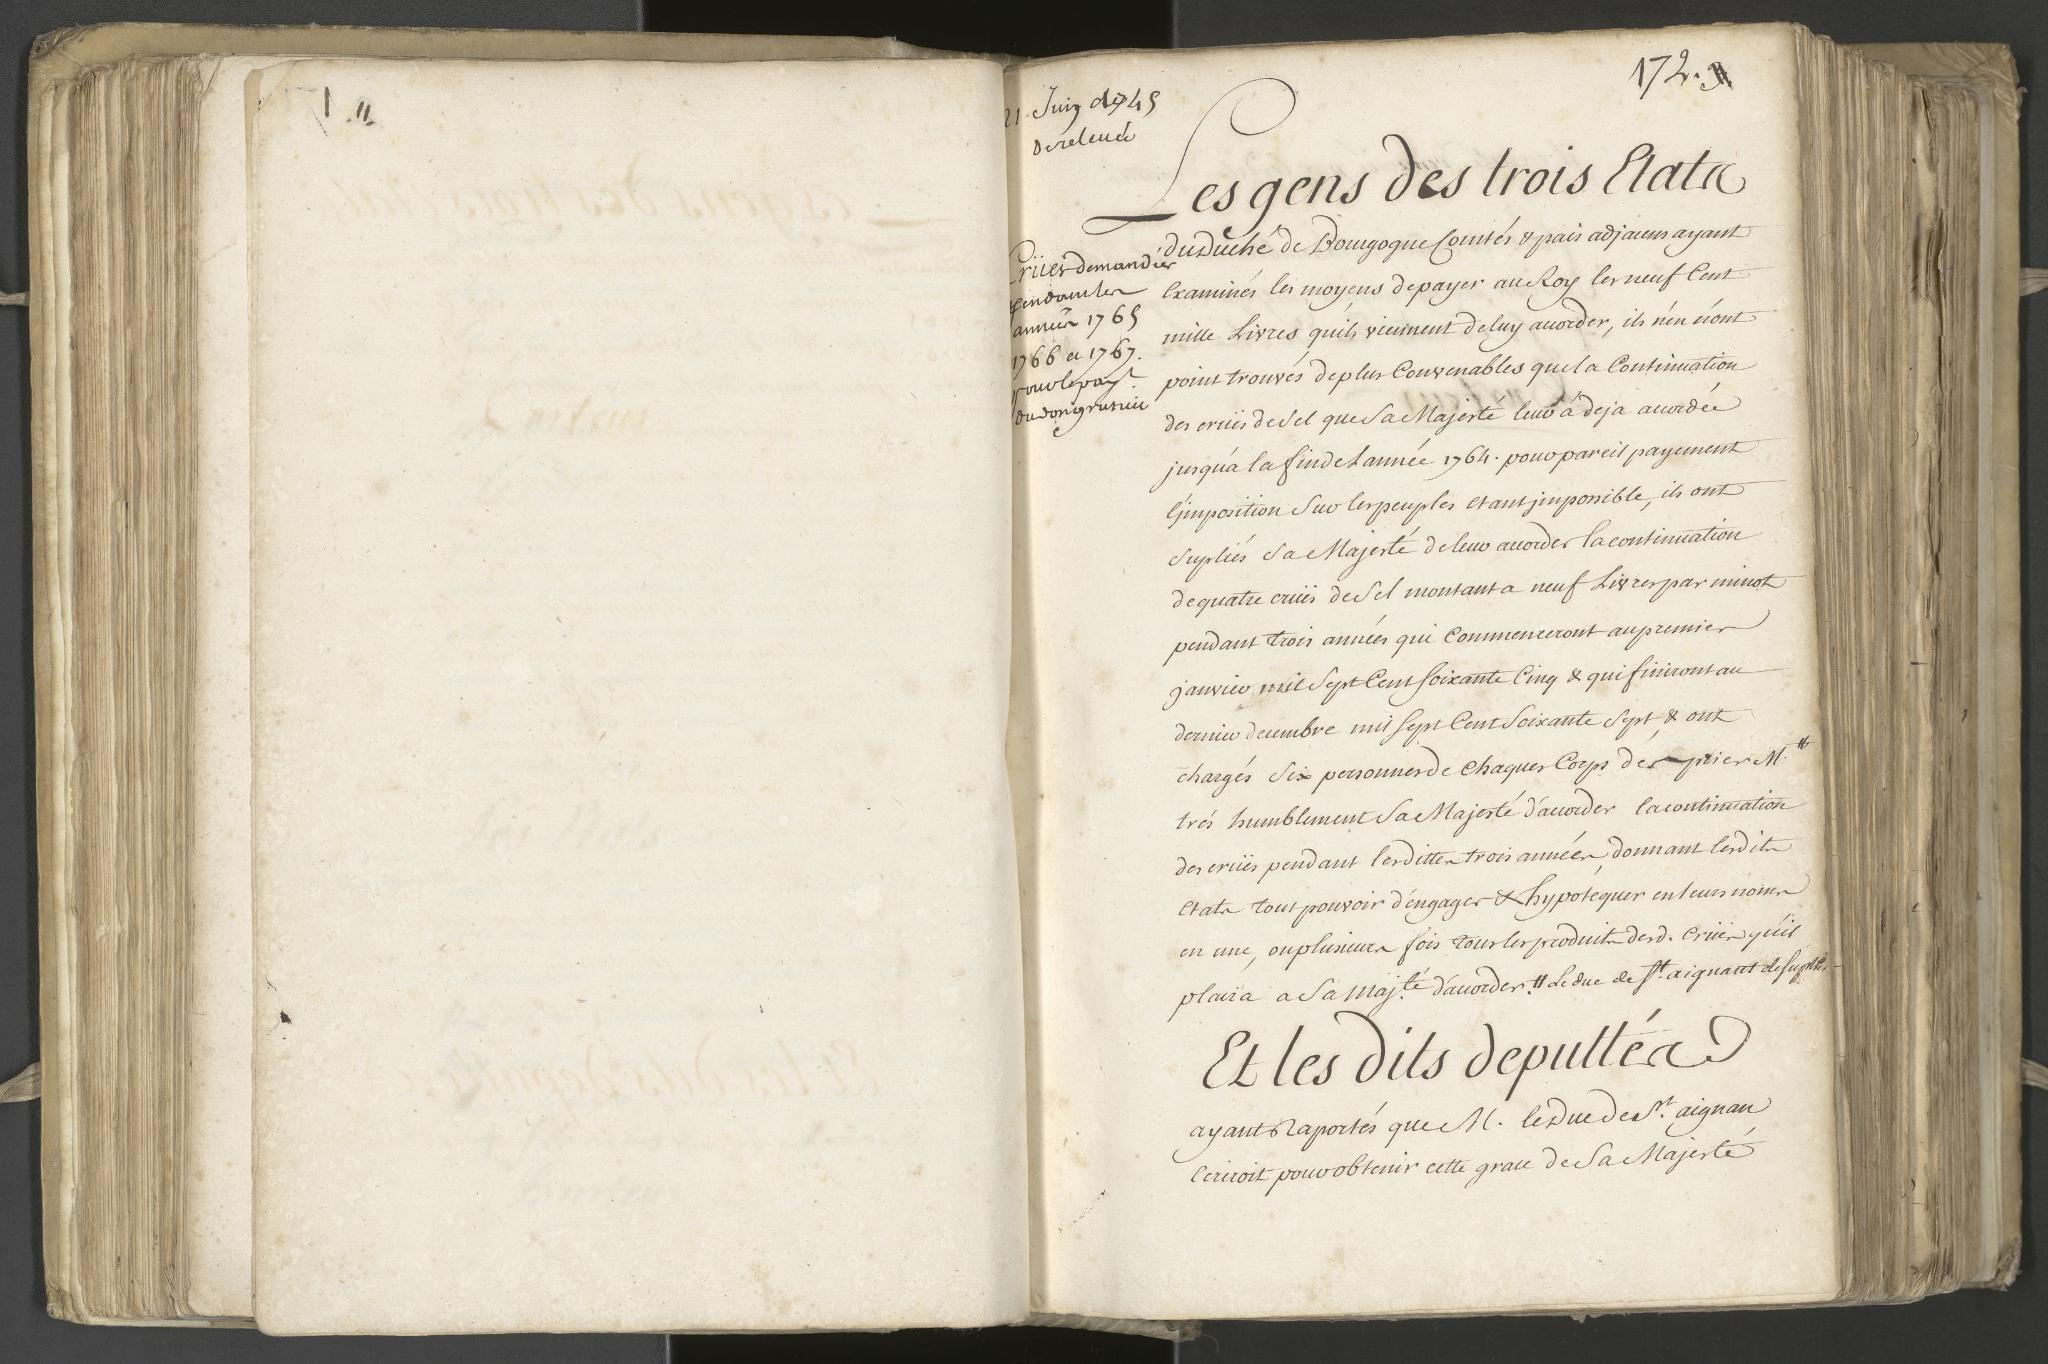 172.
21. Juin 1745
De relevée
Les gens des trois Etats
du Duché de Bourgogne Comtés & païs adjacens ayant
Examinés les moyens de payer au Roy les neuf Cent
mille Livres qu'ils viennent de luy acorder, ils n'en n'ont
point trouvés de plus Convenables que la Continuation
des crües de Sel que Sa Majesté leur â deja acordée
jusqu'a la fin de L'année 1764. pour pareil payement
L'jmposition Sur les peuples etant jmpossible, ils ont
Supliés Sa Majesté de leur acorder la continuation
de quatre crües de Sel montant a neuf Livres par minot
pendant trois années qui Commenceront au premier
janvier mil Sept Cent Soixante Cinq & qui finiront au
dernier decembre mil Sept Cent Soixante Sept, & ont
chargés Six personnes de Chaques Corps de prier M.
trés humblement Sa Majesté d'acorder la continuation
des crües pendant lesdittes trois années, donnant lesdits
Etats tout pouvoir d'engager & hypotequer en leurs noms
en une, ou plusieurs fois tous les produits desd. Crües qu'il
plaira a Sa Maj.té d'acorder. " Le duc de St. aignant de suplier
Crües demandées
pendant les
années 1765
1766 et 1767.
pour le pay.t
du don gratuit
Et les dits deputtés
ayant Raportés que M. le Duc de St. aignan
Ecriroit pour obtenir cette grace de Sa Majesté